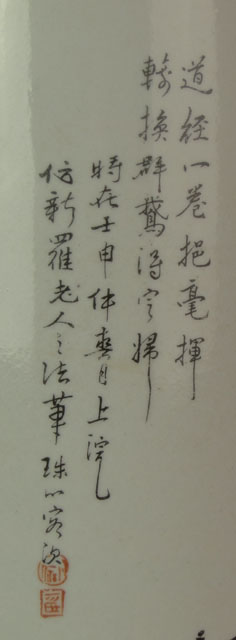 道經一卷挹毫揮
輪換群鵝得它歸
時在壬申仲春月上浣
仿新羅老人之法筆珠山客次